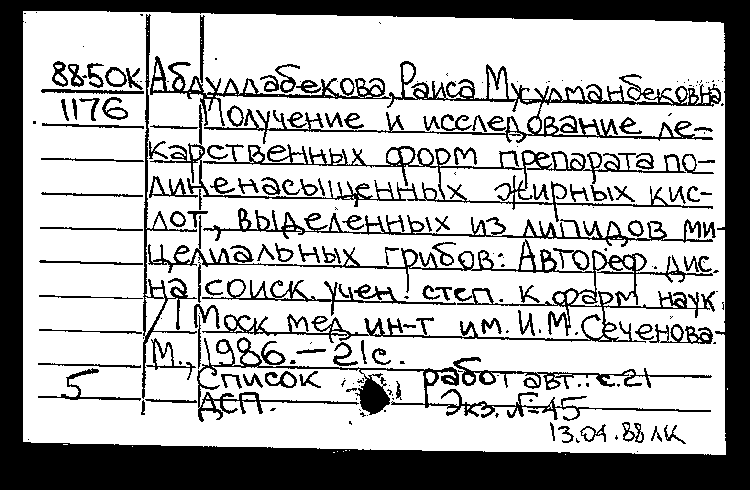 88-50К Абдуллабекова, Раиса Мусулманбековна
1176 Получение и исследование ле-
карственных форм препарата по-
линенасыщенных жирных кис-
лот, выделенных из липидов ми-
целиальных грибов: Автореф. дис.
на соиск. учен. степ. к. фарм. наук
/ 1 Моск. мед. ин-т им. И. М. Сеченова-
М., 1986. – 21 с.
5 Список работ авт.: с. 21
ДСП. Экз. № 45
13.04.88 ЛК